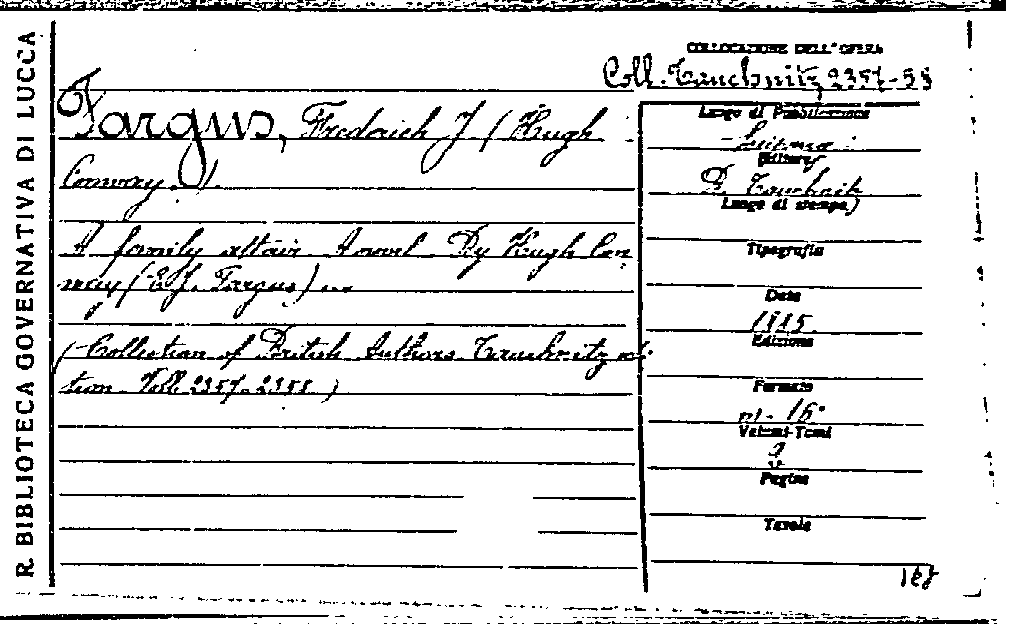 R. BIBLIOTECA GOVERNATIVA DI LUCCA
COLLOCAZIONE DELL'OPERA
Coll. Tauchnitz 2357-58
Fargus, Frederich J. (Hugh
Conway.)
A family affair. A novel. By Hugh Con
way (F. J. Fargus) ...
(Collection of British Authors. Tauchnitz edi-
tion. Voll. 2357-2358.)
Luogo di Pubblicazione
Editore
B. Tauchnitz
Luogo di stampa)
Tipografia
Data
1885.
Edizione
Formato
in-16°
Volumi-Tomi
2
Pagine
Tavole